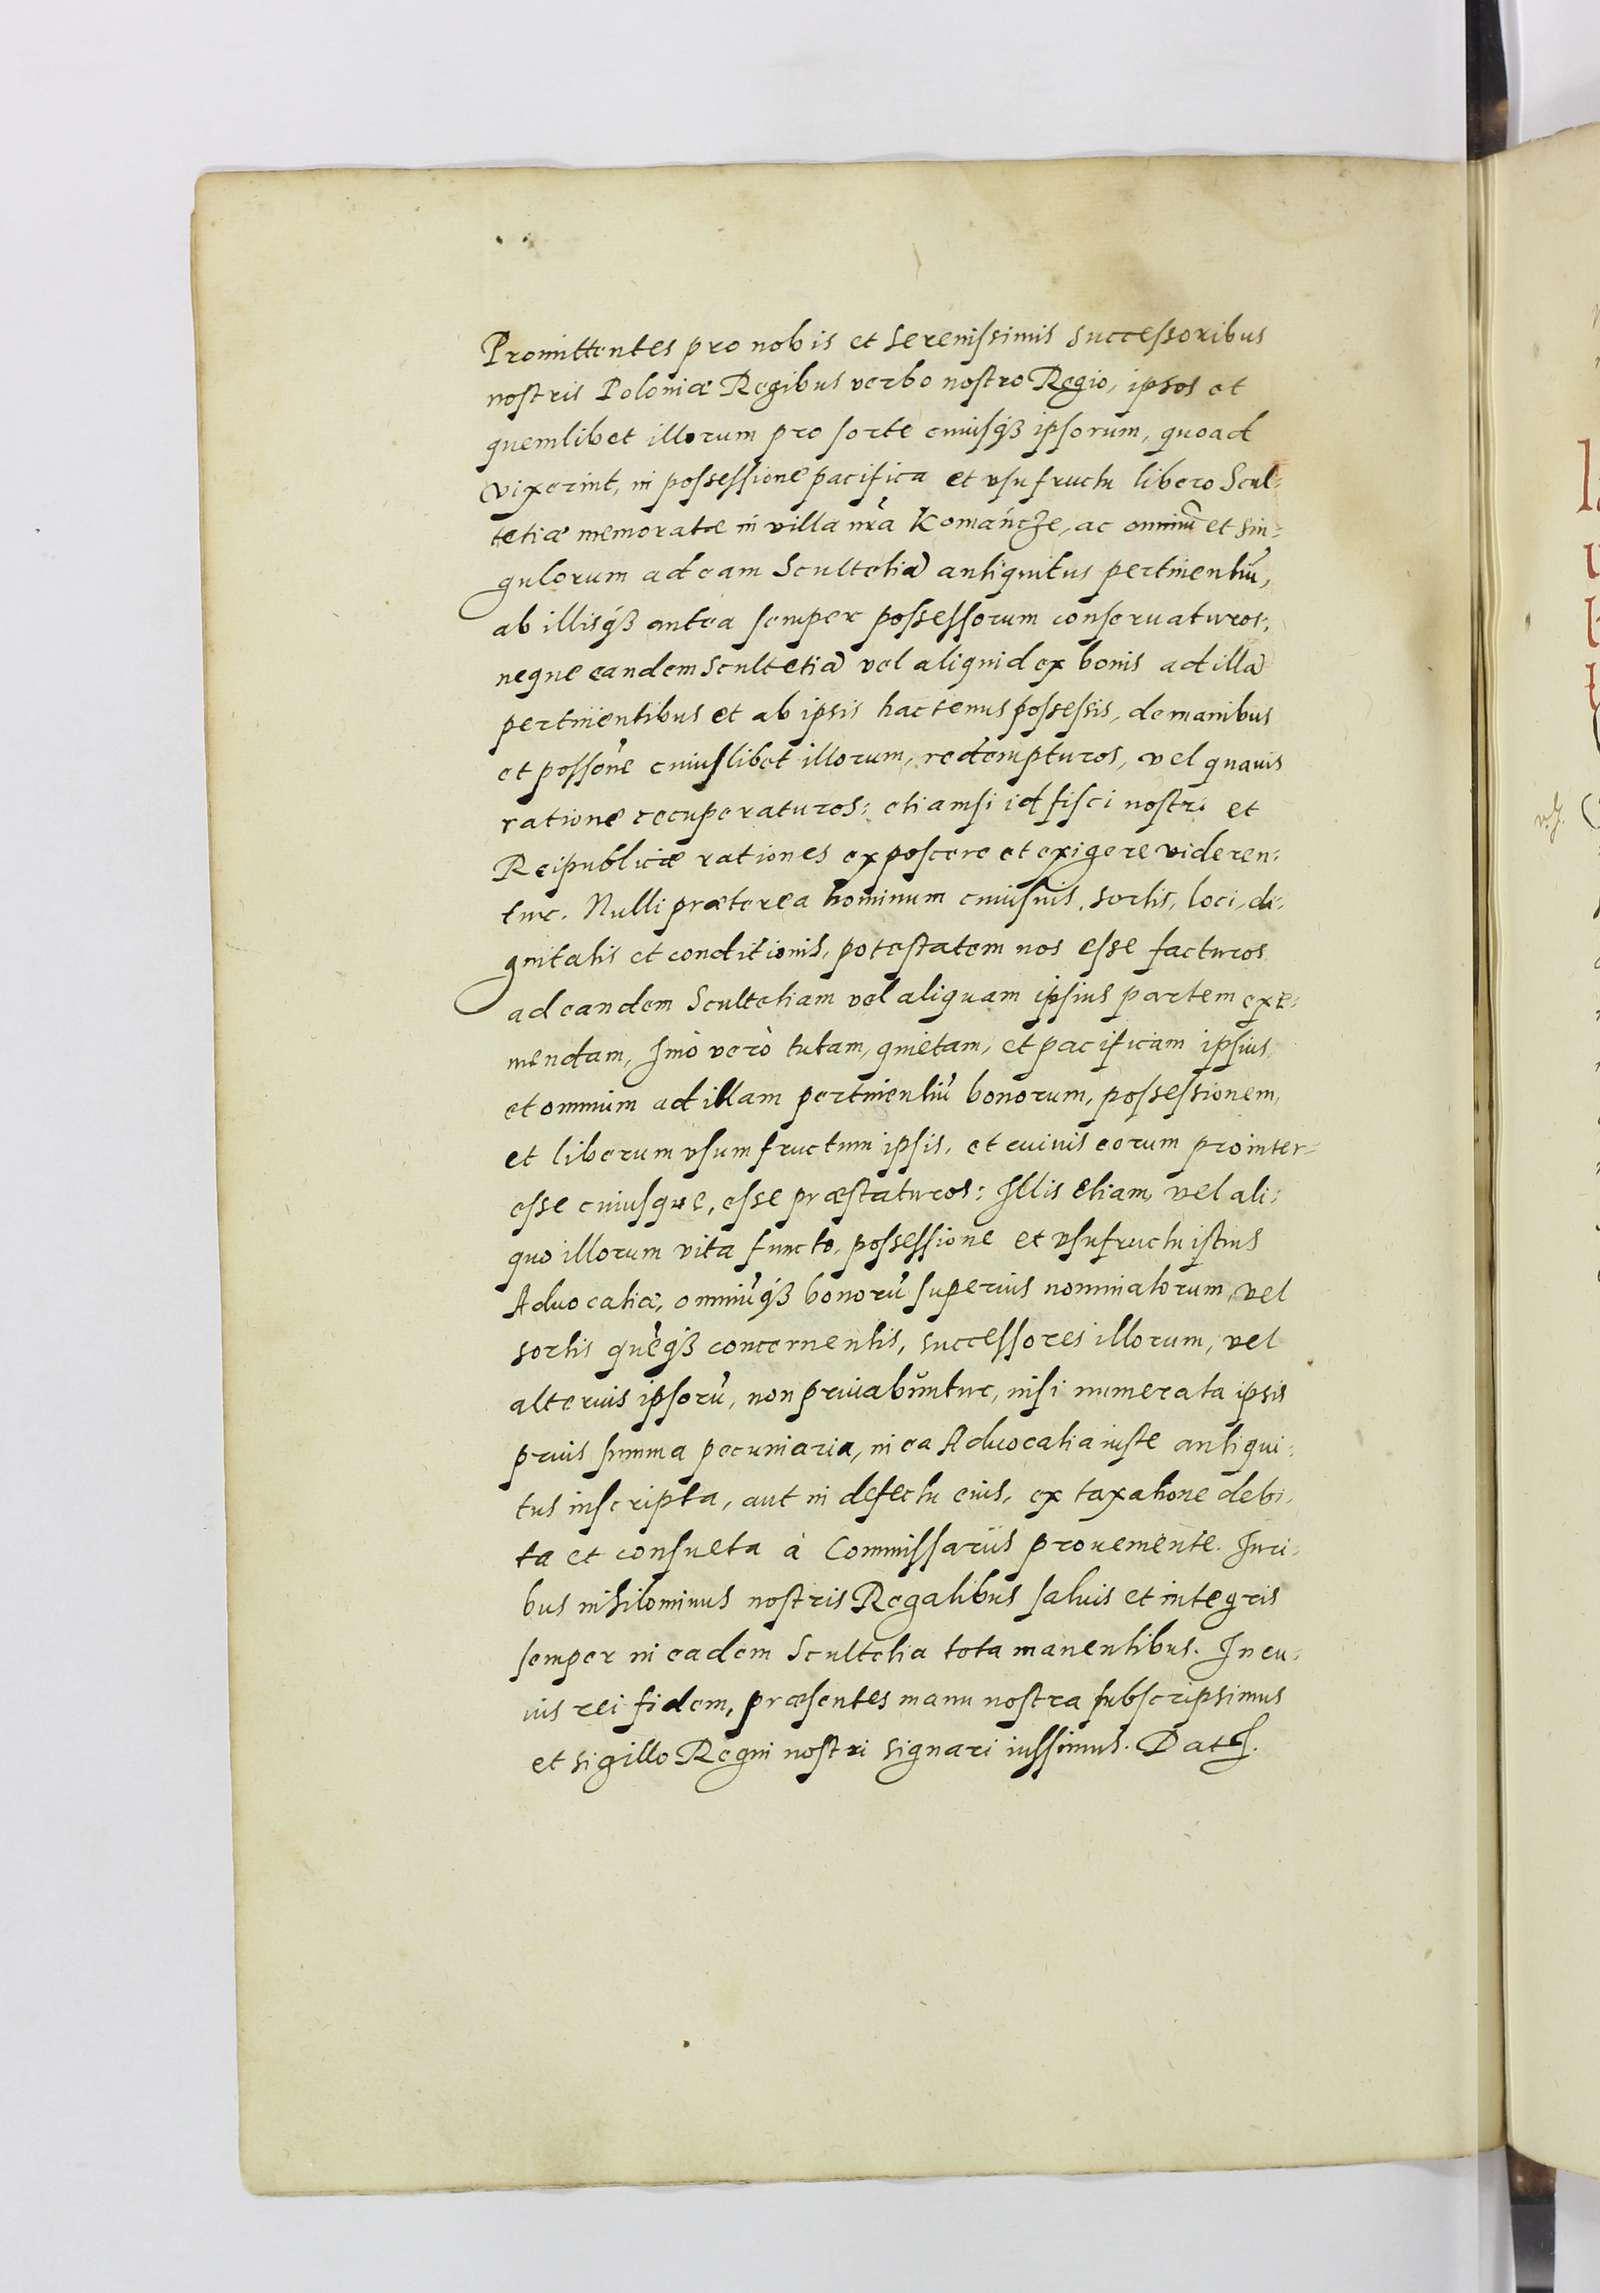 Promittentes pro nobis et serenissimis successoribus
nostris Poloniæ Regibus verbo nostro Regio, ipsos et
quemlibet illorum pro sorte cuiusq́ꝫ ipsorum, quoad
vixerint, in possessione pacifica et vsufructu libero Scul-
tetiæ memoratæ in villa nrã Komańcze, ac omniũ et sin-
gulorum ad eam Scultetiã antiquitus pertinentiũ,
ab illisq́ꝫ antea semper possessorum conseruaturos,
neque eandem Scultetiã vel aliquid ex bonis ad illã
pertinentibus et ab ipsis hactenus possessis, de manibus
et possõne cuiuslibet illorum, redempturos, vel quauis
ratione recuperaturos: etiamsi id fisci nostri et
Reipublicæ rationes exposcere et exigere videren-
tur. Nulli præterea hominum cuiusuis, sortis, loci, di-
gnitatis et conditionis, potestatem nos esse facturos
ad eandem Scultetiam vel aliquam ipsius partem exi-
mendam, Imò verò tutam, quietam, et pacificam ipsius,
et omnium ad illam pertinentiũ bonorum, possessionem,
et liberum vsumfructum ipsis, et cuiuis eorum pro inter-
esse cuiusque, esse præstaturos: Illis etiam, vel ali-
quo illorum vita functo, possessione et vsufructu istius
Aduocatiæ, omniũq́ꝫ bonorũ superius nominatorum, vel
sortis quẽq́ꝫ concernentis, successores illorum, vel
alteruis ipsorũ, non priuabuntur, nisi numerata ipsis
prius summa pecuniaria, in ea Aduocatia iuste antiqui-
tus inscripta, aut in defectu eius, ex taxatione debi-
ta et consueta à Commissariis proueniente. Iuri-
bus nihilominus nostris Regalibus saluis et integris
semper in eadem Scultetia tota manentibus. In cu-
ius rei fidem, præsentes manu nostra subscripsimus
et sigillo Regni nostri signari iussimus. Dat